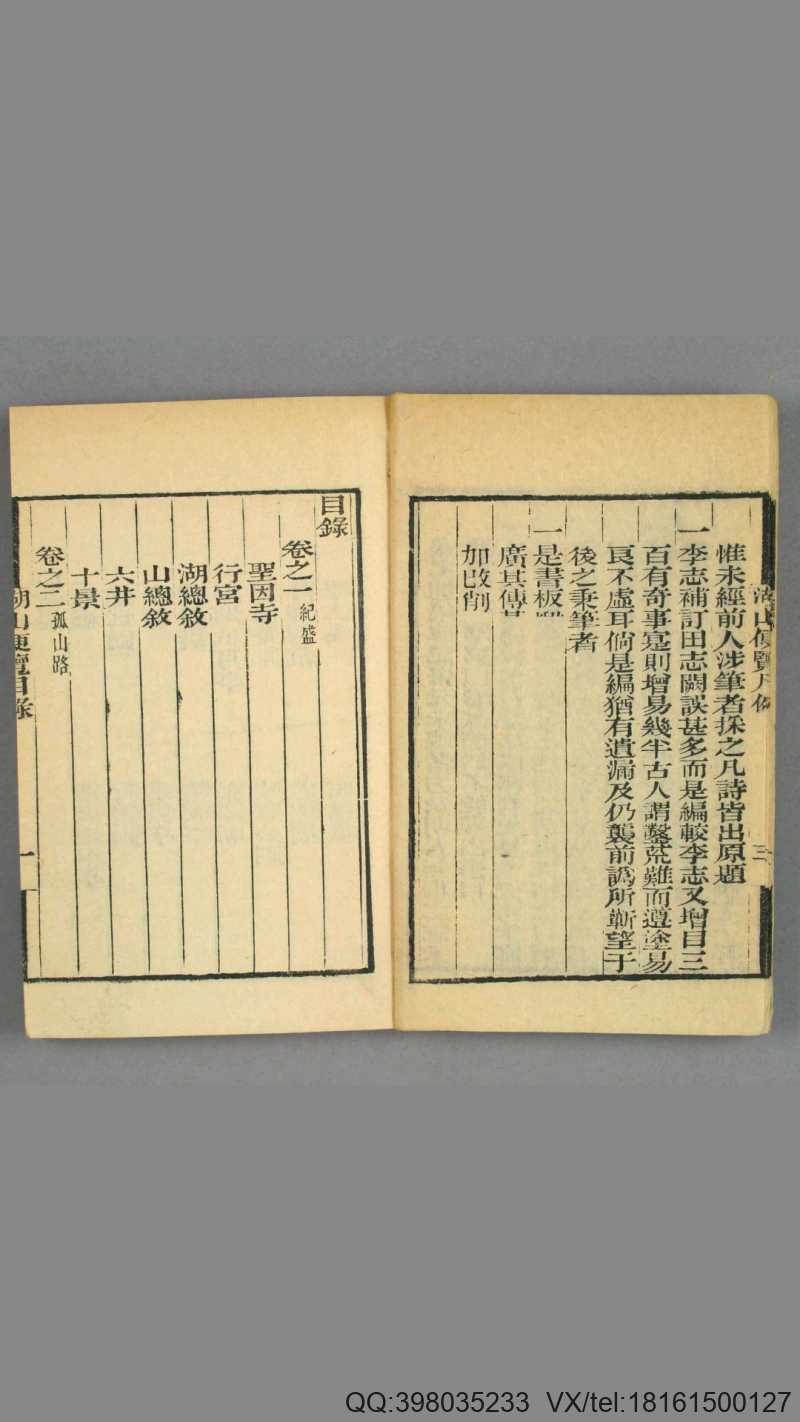 惟未經前人涉筆者採之凡詩皆出原題
一李志補訂田志闕誤甚多而是編較李志又增目三
百有奇事寔則增易幾半古人謂鑿荒難而遵塗易
良不虛耳倘是編猶有遺漏及仍襲前譌所蘄望于
後之秉筆者
一是書板
廣其傳
加改削
三
目錄
卷之一 紀盛
聖因寺
行宮
湖總敘
山總敘
六井
十景
卷之二 孤山路
湖山便覽目錄
一
QQ:398035233 VX/tel:18161500127